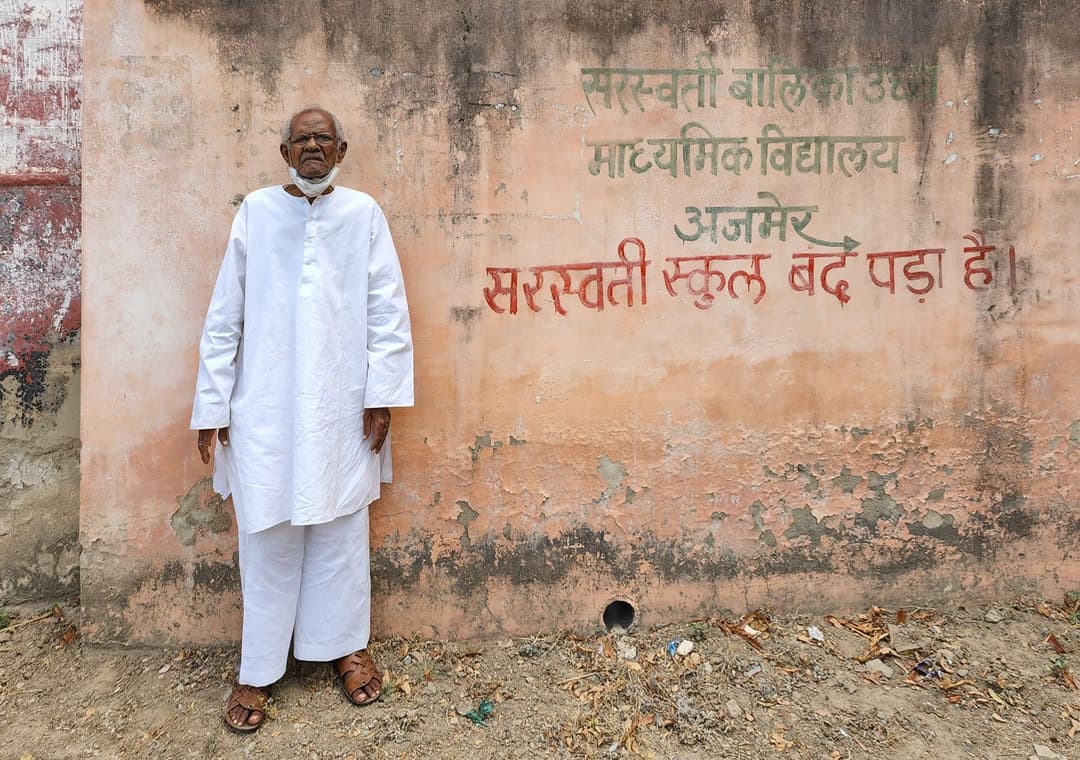 सरस्वती बालिका उच्च
माध्यमिक विद्यालय
अजमेर
सरस्वती स्कुल बंद पड़ा है।